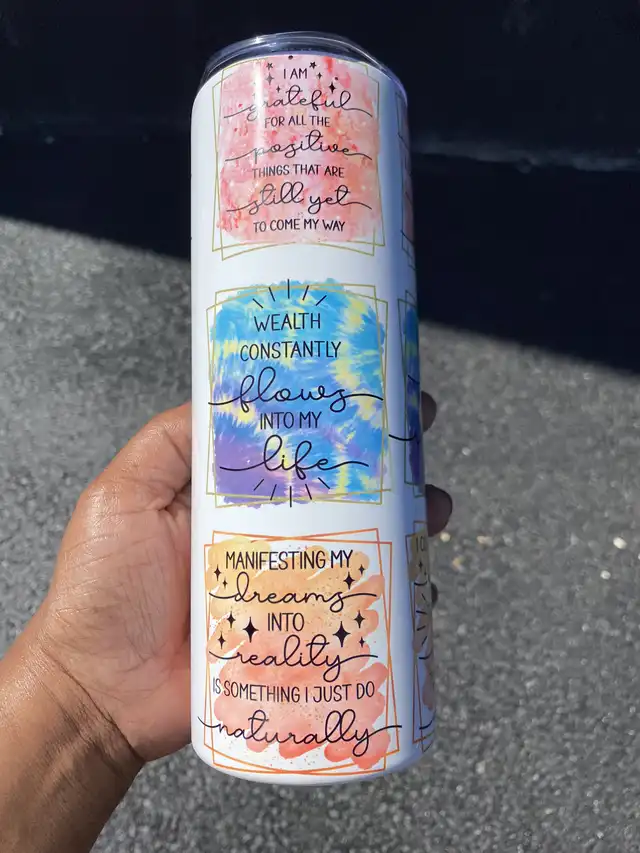 I AM
grateful
FOR ALL THE
positive
THINGS THAT ARE
still yet
TO COME MY WAY
WEALTH
CONSTANTLY
flows
INTO MY
life
MANIFESTING MY
dreams
INTO
reality
IS SOMETHING I JUST DO
naturally